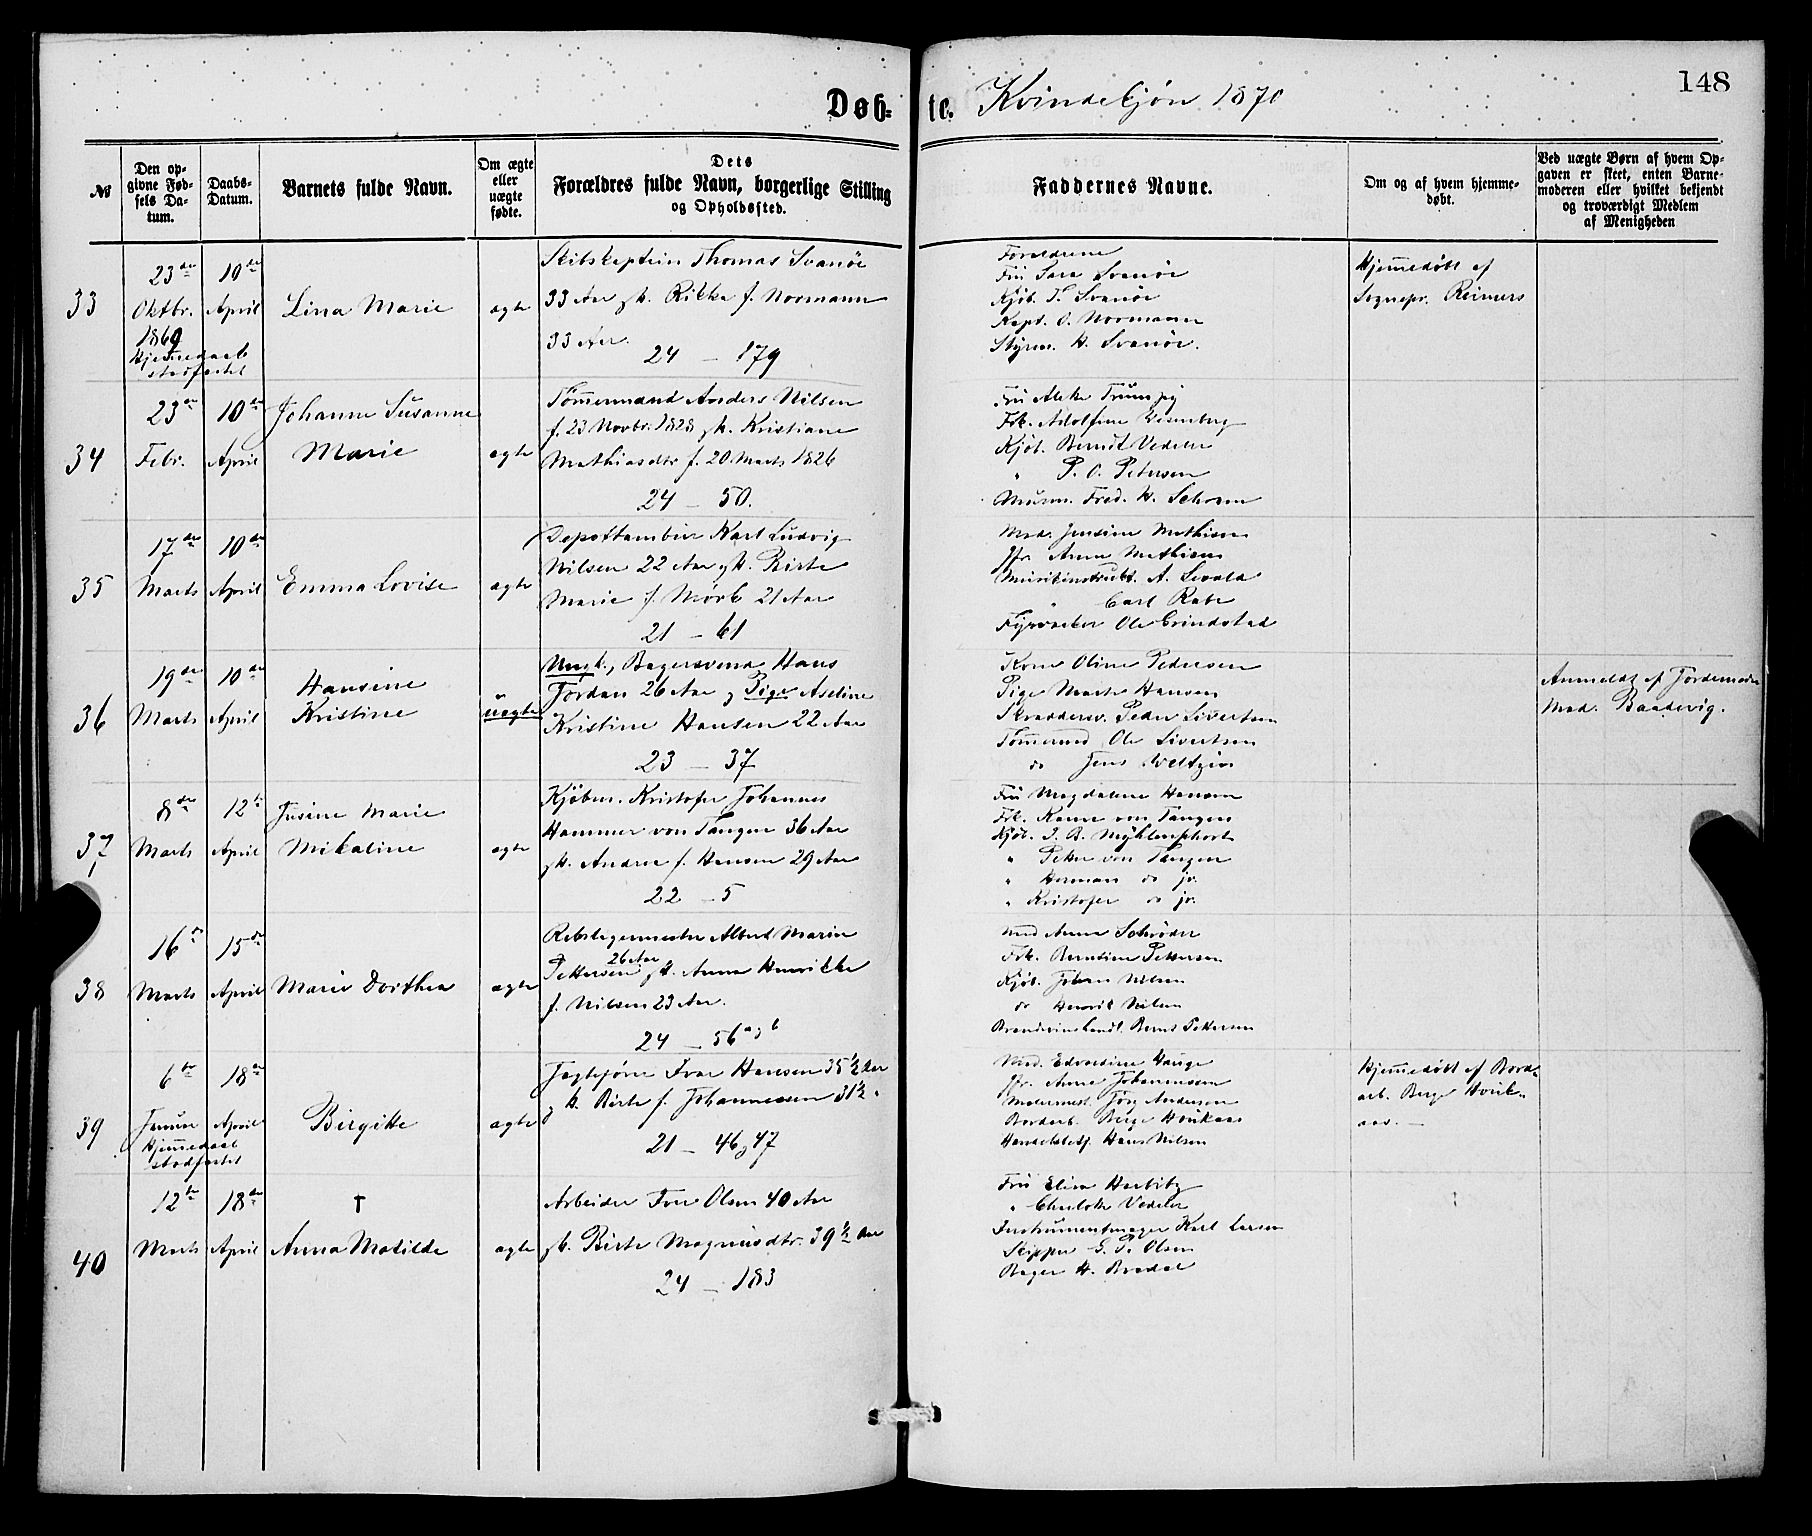 148
Døb- te. Kvindekjøn 1870
№
Den op-
givne Fød-
sels Da-
tum.
Daabs-
Datum.
Barnets fulde Navn.
Om ægte
eller
uægte
fødte.
Dets
Forældres fulde Navn, borgerlige Stilling
og Opholdssted.
Faddernes Navne.
Om og af hvem hjemme-
døbt.
Ved uægte Børn af hvem Op-
gaven er skeet, enten Barne-
moderen eller hvilket bekjendt
og troværdigt Medlem
af Menigheden
33
23de
Oktbr.
1869
Hjemmedaab
stadfæstet
10de
April
Lina Marie
ægte
Skibskaptein Thomas Svanøe
33 Aar g h. Rikke f. Normann
33 Aar.
24 — 179
Forældrene
Fru Sara Svanøe
Kjøb. T. Svanøe
Kapt. O. Normann
Styrm. H. Svanøe.
Hjemmedøbt af
Sognepr. Reimers
34
23de
Febr.
10de
April
Johanne Susanne
Marie
ægte
Tømmermand Anders Nilsen
f. 23 Novbr. 1828 g h. Kristiane
Mathiasdtr f. 20. Marts 1826
24 — 50.
Fru Aleke Trumpy
Frk. Adolfine Wesenberg
Kjøb. Berndt Vedeler
" P. O. Petersen
Murm. Fred. H. Schram
35
17de
Marts
10de
April
Emma Lovise
ægte
Depottambur Karl Ludvig
Nilsen 22 Aar g h. Birte
Marie f. Mørk 21 Aar
21 — 61
Mad. Jensine Mathiesen
Jfr. Anna Mathiesen
Musikinstrukt. A. Sewald
" Carl Rabe
Fyrvogter Ole Grindstad
36
19de
Marts
10de
April
Hansine
Kristine
uægte
Ungk., Bagersvend Hans
Jordan 26 Aar g Pige Aseline
Kristine Hansen 22 Aar
23 — 37
Kone Oline Pedersen
Pige Marte Hansen
Skræddersv. Peder Sivertsen
Tømmermd Ole Sivertsen
do Jens
Anmeldt af Jordemoder
Mad. Baadsvig.
37
8de
Marts
12te
April
Jusine Marie
Mikaline
ægte
Kjøbm. Kristofer Johannes
Hammer von Tangen 36 Aar
g h. Andrea f. Hansen 29 Aar
22 — 5
Fru Magdalene Hansen
Frk. Hanna von Tangen
Kjøb. J. B. Myhlenphort
" Peter von Tangen
" Herman do jr.
" Kristofer do jr.
38
16de
Marts
15de
April
Marie Dorthea
ægte
Rebslagermester Albert Marin
Pettersen 26 Aar g h. Anna Henrikke
f. Nilsen 23 Aar.
24 — 56 a g b
Mad Anna Schrøder
Frk. Berntine Pettersen
Kjøb. Johan Nilsen
do Henrik Nilsen
Brændevinshandl. Bernt Pettersen
39
6te
Januar
Hjemmedaab
stadfæstet
18de
April
Birgitte
ægte
Jagtefører Ivar Hansen 35½ Aar
g h. Birte f. Johannessen 31½ "
21 — 46 g 47
Mad. Edvardine Hauge
Jfr. Anna Johannessen
Malermest. Jørg. Andersen
Bordarb. Berge Hovikaas
Handelsbetj. Hans Nilsen
Hjemmedøbt af Bord-
arb. Berge Hovik-
aas. —
40
12te
Marts
18de
April
†
Anna Matilde
ægte
Arbeider Iver Olsen 40 Aar
g h. Birte Magnusdtr. 39½ Aar
24 — 183
Fru Elisa Harbitz
" Charlotte Vedeler
Instrumentmager Karl Larsen
Skipper G. T. Olsen
Bager H. Bredal